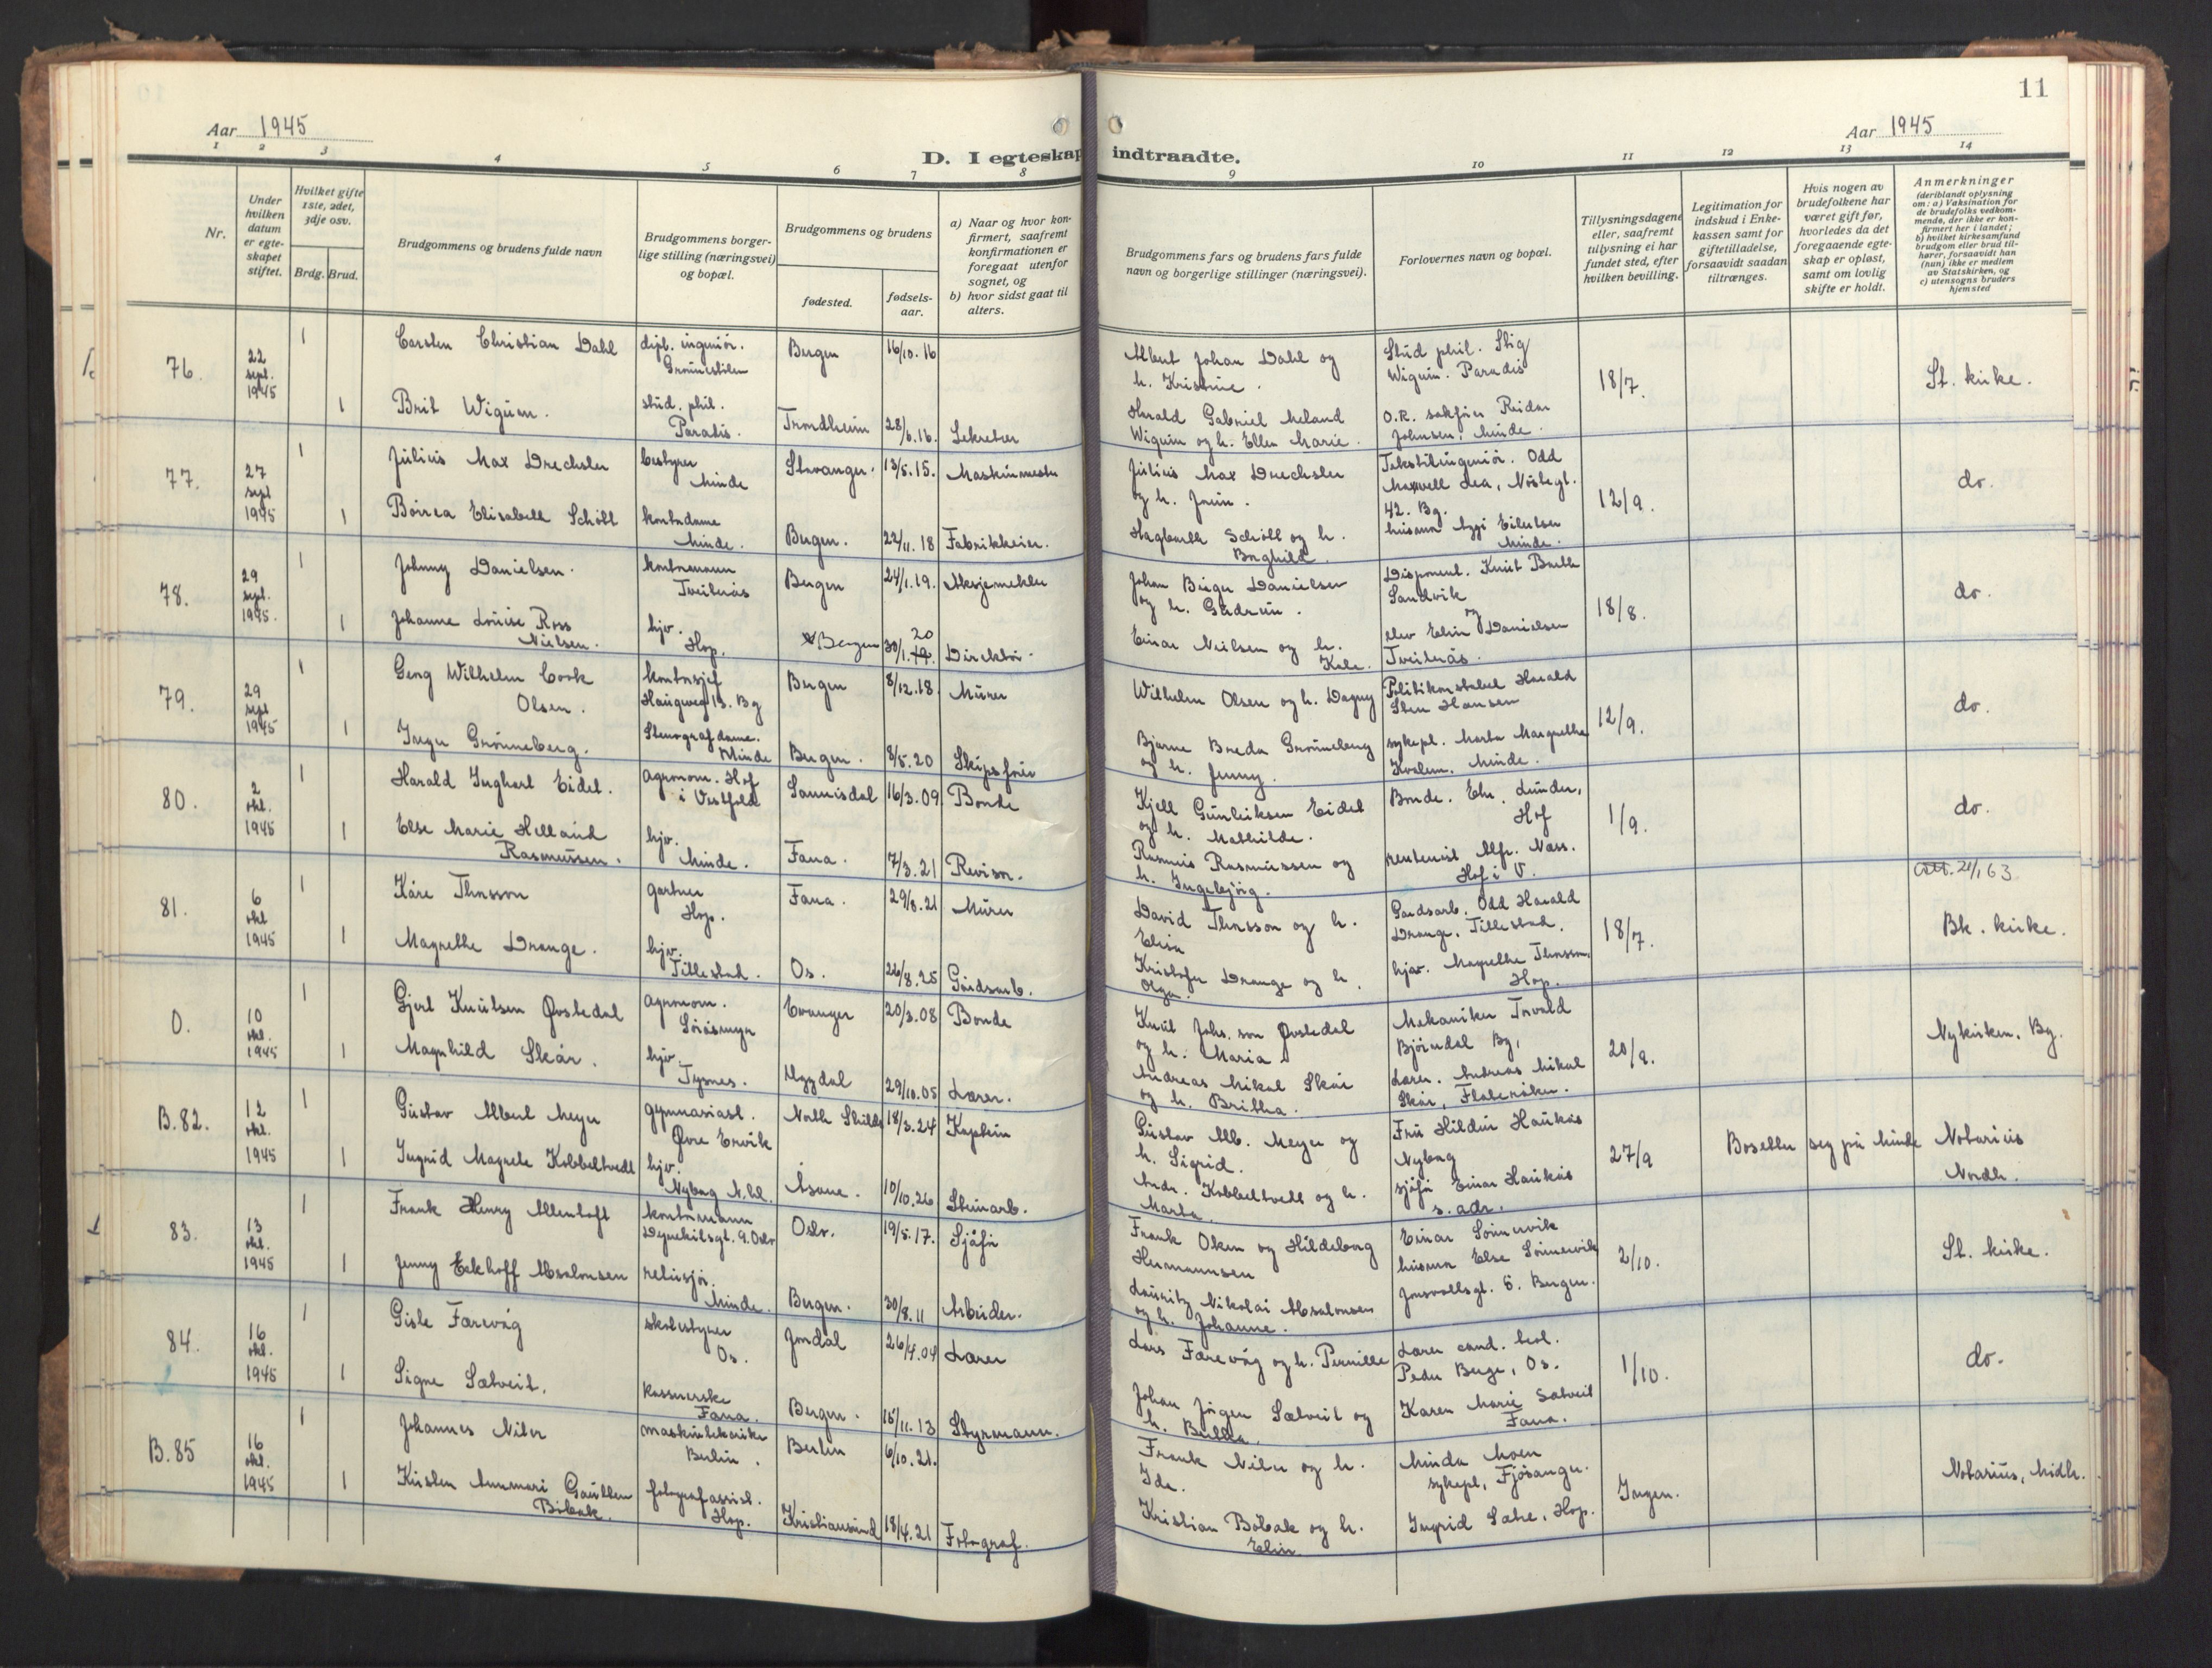 11
Aar 1945
Aar 1945
D. I egteskap indtraadte.
1 2 3 4 5 6 7 8 9 10 11 12 13 14
Nr.
Under hvilken datum er egteskapet stiftet.
Hvilket gifte 1ste, 2det, 3dje osv.
Brdg. Brud.
Brudgommens og brudens fulde navn
Brudgommens borgerlige stilling (næringsvei) og bopæl.
Brudgommens og brudens
fødested.
fødselsaar.
a) Naar og hvor konfirmert, saafremt konfirmationen er foregaat utenfor sognet, og
b) hvor sidst gaat til alters.
Brudgommens fars og brudens fars fulde navn og borgerlige stillinger (næringsvei).
Forlovernes navn og bopæl.
Tillysningsdagene eller, saafremt tillysning ei har fundet sted, efter hvilken bevilling.
Legitimation for indskud i Enkekassen samt for giftetilladelse, forsaavidt saadan tiltrænges.
Hvis nogen av brudefolkene har været gift før, hvorledes da det foregaaende egteskap er opløst, samt om lovlig skifte er holdt.
Anmerkninger
(deriblandt oplysning om: a) Vaksination for de brudefolks vedkommende, der ikke er konfirmert her i landet; b) hvilket kirkesamfund brudgom eller brud tilhører, forsaavidt han (hun) ikke er medlem av Statskirken, og c) utensogns bruders hjemsted
76. 22 sept. 1945 1 Carsten Christian Dahl dipl. ingeniör. Grönnestölen Bergen 16/10.16 Albert Johan Dahl og h. Kristine. Stud phil. Stig Wigum. Paradis 18/7. St. kirke.
1 Brit Wigum. stud. phil. Paradis. Trondheim 28/6.16. Sekretær Harald Gabriel Meland Wigum og h. Ellen Marie. O.R. sakförer Reidar Johnsen, Minde.
77. 27 sept 1945 1 Julius Max Drechsler bestyrer Minde Stavanger. 13/5.15. Maskinmester Julius Max Drechsler og h. Tekstilingeniör. Odd Maxwell Lea, Nöstegt. 42. Bg. 12/9. do.
1 Elisabeth Schöll kontordame Minde. Bergen. 22/11.18 Fabrikkeier. Hagbarth Schöll og h. Borghild. husmor Eilertsen Minde.
78. 29 sept. 1945. 1 Johnny Danielsen. kontormann Tveiterås Bergen 24/1.19. Aksjemekler Johan Birger Danielsen og h. Gudrun. Disponent. Knut Sandvik og 18/8. do.
1 Johanne Louise Ross Nielsen. hjv. Hop. Bergen 30/1. 20 Direktör. Einar Nielsen og h. elev Elin Danielsen Tveiterås.
79. 29 sept 1945 1 Georg Wilhelm Cook Olsen. kontorsjef Haugveg 13. Bg Bergen 8/12.18. Murer Wilhelm Olsen og h. Dagny Politikonstabel Harald Sten Hansen 12/9. do.
1 Inger Grönneberg. Stenografdame. Minde Bergen. 8/5.20 Skipsförer Bjarne Breda Grönneberg og h. Jenny. sykepl. Marta Margrethe Kvalem. Minde.
80. 2 okt. 1945 1 Harald Inghart Eidet. agronom. Hof i Vestfold Sannisdal 16/3.09 Bonde Kjell Gunleiksen Eidet og h. Mathilde. Bonde. Chr. Lunder, Hof 1/9. do.
1 Else Marie Helland Rasmussen. hjv. Minde. Fana. 7/3.21 Revisor. Rasmus Rasmussen og h. Ingebjörg. Alfr. Næss. Hof i V.
81. 6 okt 1945 1 Kåre Thorsson gartner Hop. Fana. 29/8.21 Murer David Thorsson og h. Elisa Gardsarb. Odd Harald Drange. Tillestad. 18/7. Att. 21/1 63. Bk. kirke.
1 Magrethe Drange. hjv. Tillestad. Os. 26/8.25 Gårdsarb. Kristofer Drange og h. Olga. hjv. Magrethe Thorsson. Hop.
0. 10 okt. 1945 1 Gjert Knutsen Övstedal agronom. Söråsmyr Evanger 20/3.08 Bonde Knut Johs.son Övstedal og h. Maria Mekaniker Torvald Björndal Bg. 20/9. Nykirken. Bg.
1 Magnhild Skår. hjv. Tysnes. Uggdal 29/10.05 Lærer. Andreas Mikal Skår og h. Britha. Lærer. Andreas Mikal Skår, Flateråker.
B.82. 12 okt. 1945 1 Gustav Albert Meyer gymnasiast. Övre Ervik North Shields 18/3.24 Kaptein Gustav Alb. Meyer og h. Sigrid. Fru Hildur Haukås Nyborg 27/9 Bosetter seg på Minde Notarius Nordh.
1 Ingrid Magrete Kobbeltvedt hjv. Nyborg N.hl. Åsane. 10/10.26 Steinarb. Andr. Kobbeltvedt og h. Marta. sjåför Einar Haukås s. adr.
83. 13 okt. 1945 1 Frank Henry Allentoft kontormann Oslo Oslo. 19/5.17. Sjåför Frank Oken og Hildeborg Hermannsen Einar Sönnervik husmor Else Sönnervik Jonsvollsgt. 6. Bergen. 2/10. St. kirke.
1 Jenny Eckhoff Absalonsen retusjör. Minde. Bergen. 30/8.11 Arbeider. Lauritz Nikolai Absalonsen og h. Johanne.
84. 16 okt. 1945 1 Gisle Farevåg skolestyrer Os. Jondal 26/4.04 Lærer Lars Farevåg og h. Pernille Lærer cand. Peder Berge, Os. 1/10. do.
1 Signe Sætveit. kassererske Fana. Bergen. 15/11.13 Styrmann. Johan Jörgen Sætveit og h. Karen Marie Sætveit Fana.
B.85 16 okt. 1945 1 Johannes maskintekniker Berlin. Berlin 6/10.21. Frank og h. Ida. Minda Moen sykepl, Fjösanger. Ingen. Notarius, Midh.
1 Kirsten Annemari Böbak. fotografassist. Hop. Kristiansund 18/4.21 Fotograf. Kristian Böbak og h. Elin. Ingrid Sætre, Hop.